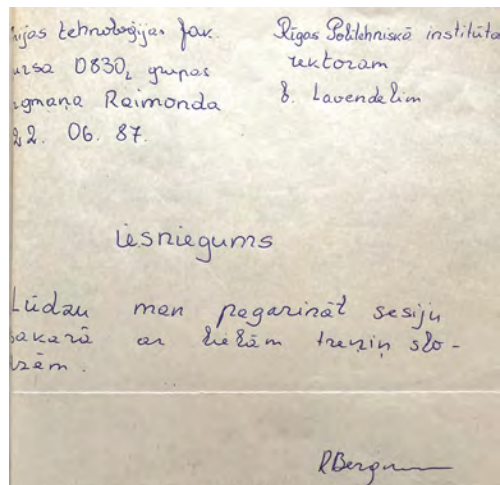 ijas tehnoloģijas fak.
ursa 0830₂ grupas
rgmaņa Raimonda
22. 06. 87.
Rīgas Politehniskā institūta
rektoram
E. Lavendelim
iesniegums
Lūdzu man pagarināt sesiju
sakarā ar lielām treniņ slo-
dzēm.
RBergm